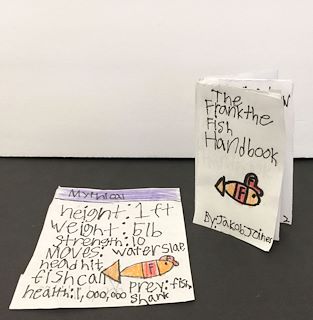 The
Frank the
Fish
Handbook
F
By: Jakob Joines
Mythical
height: 1 ft
weight: 5lb
strength: 10
Moves: water slae
head hit
fish call
F
prey: fish
health: 1,000,000 shark